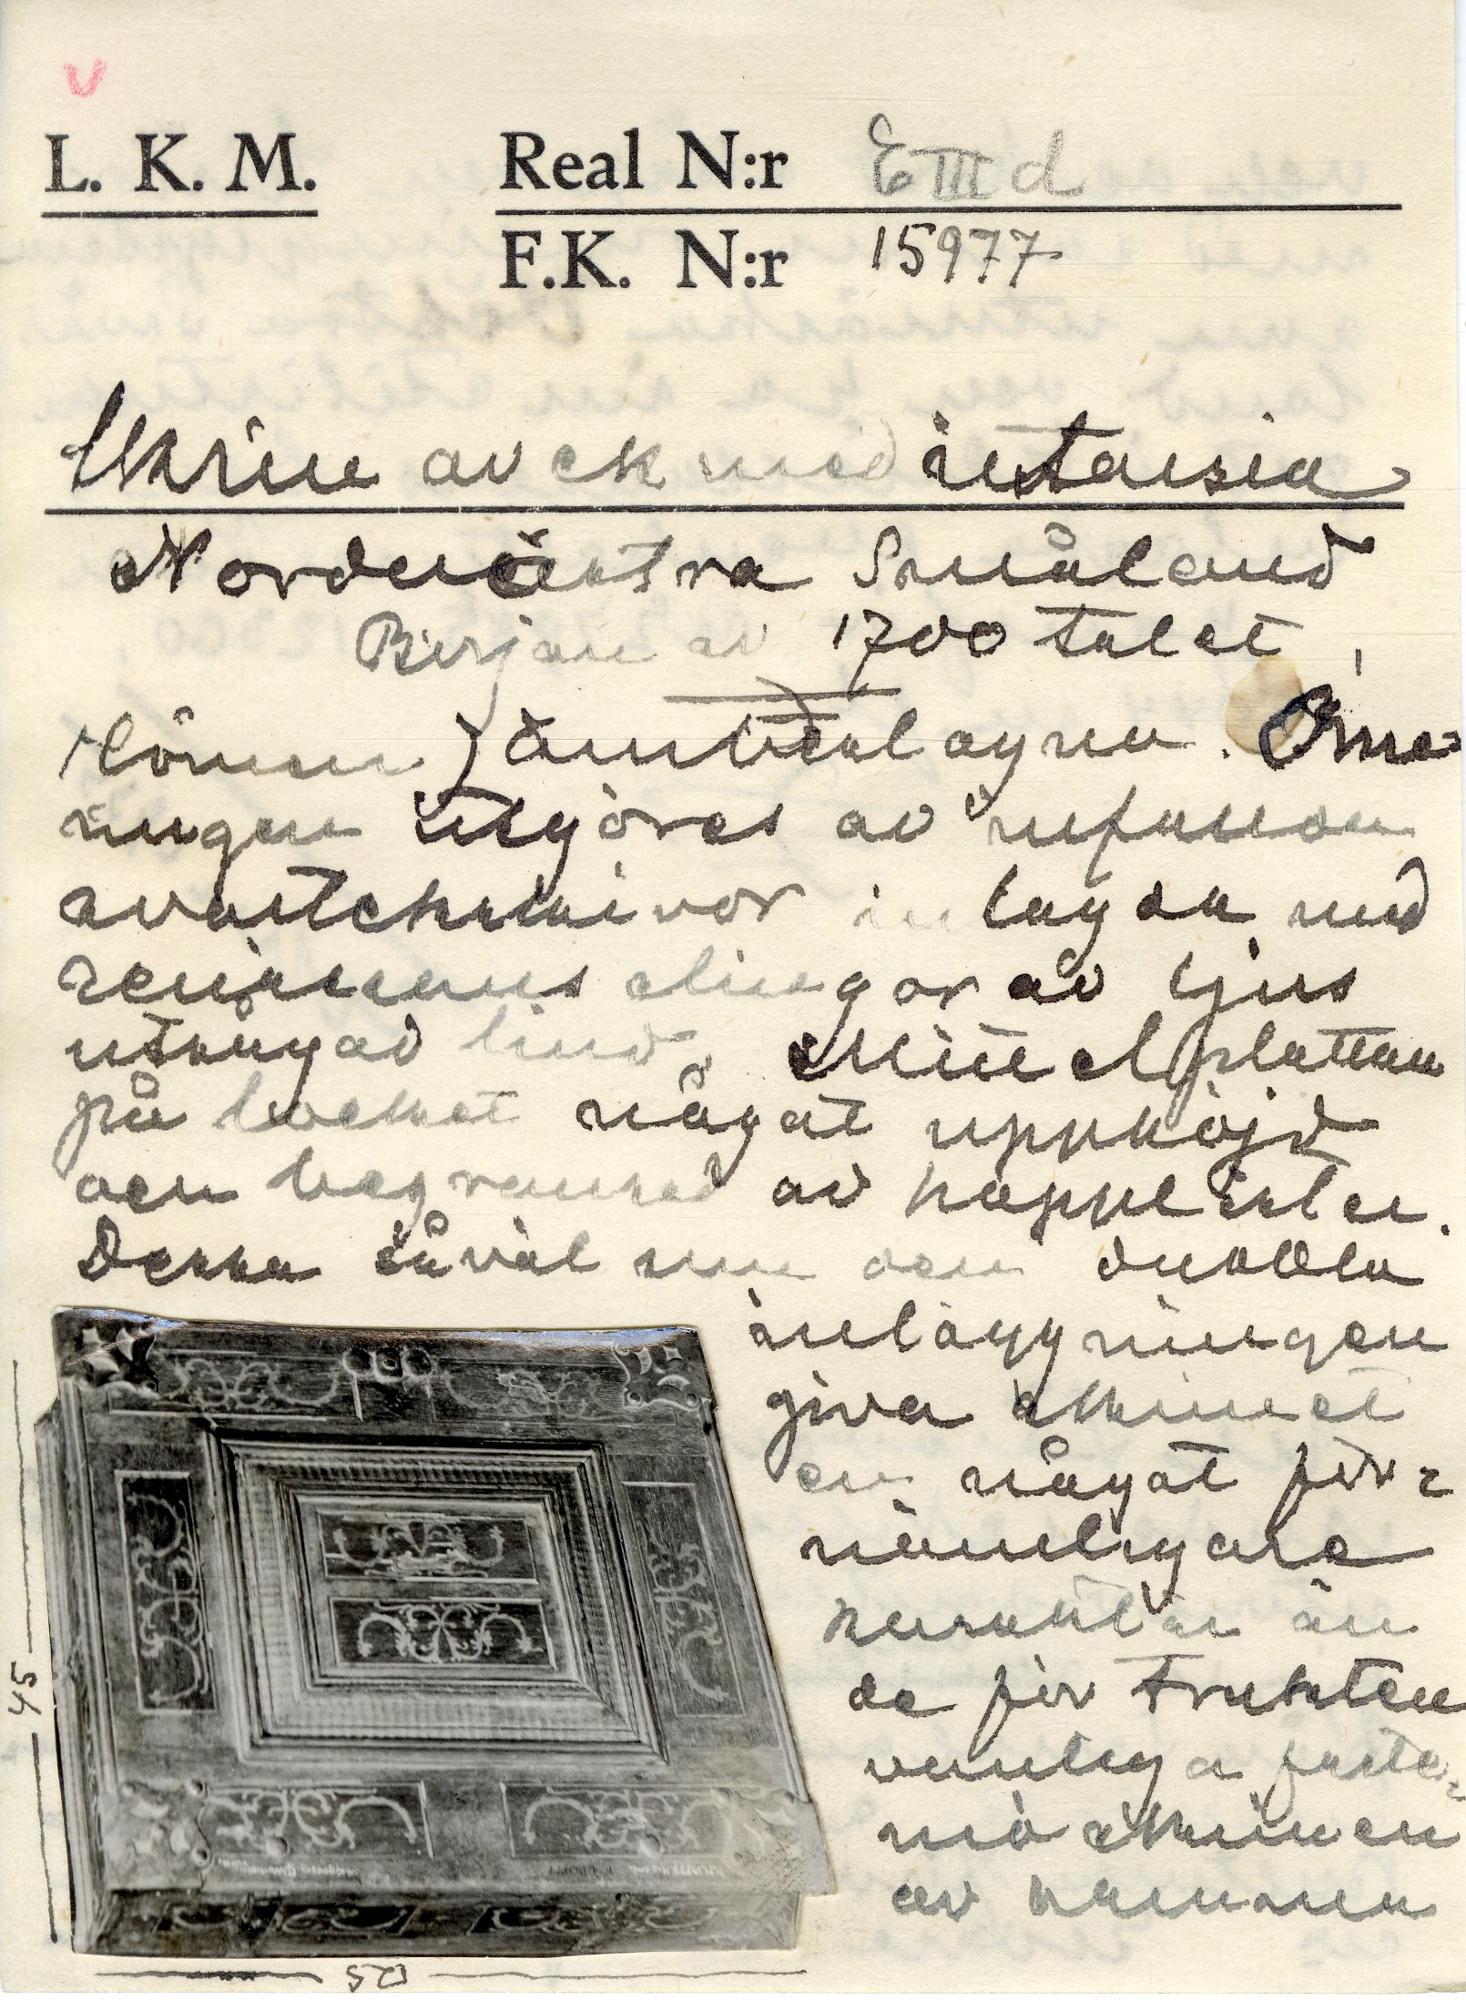 V
L. K. M.
Real N:r E III d
F.K. N:r 15977
Skrin av ek med intarsia
Nordvästra Småland
Början av 1700 talet
Hörnen järnbeslagna. Orne=
ringen utgöres av infattade
svartekskivor inlagda med
renässans slingor av ljus
utsågad lind. Mittelplattan
på locket något upphöjd
och begränsad av kapplister.
Dessa såväl som den dubbla
inläggningen
giva skrinet
en något för=
nämligare
karaktär än
de för trakten
vanliga fäste=
mö skrinen
av samma
45
50